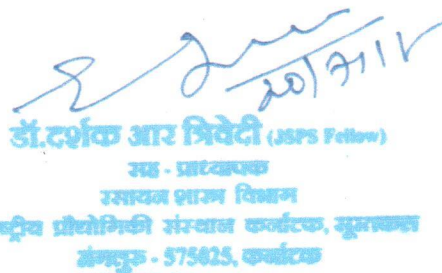 20/7/18
डॉ.दर्शक आर त्रिवेदी (JSPS Fellow)
सह - प्राध्यापक
रसायन शास्त्र विभाग
प्रौद्योगिकी संस्थान कर्नाटक, सूरतकल
मंगलूरु - 575025, कर्नाटक